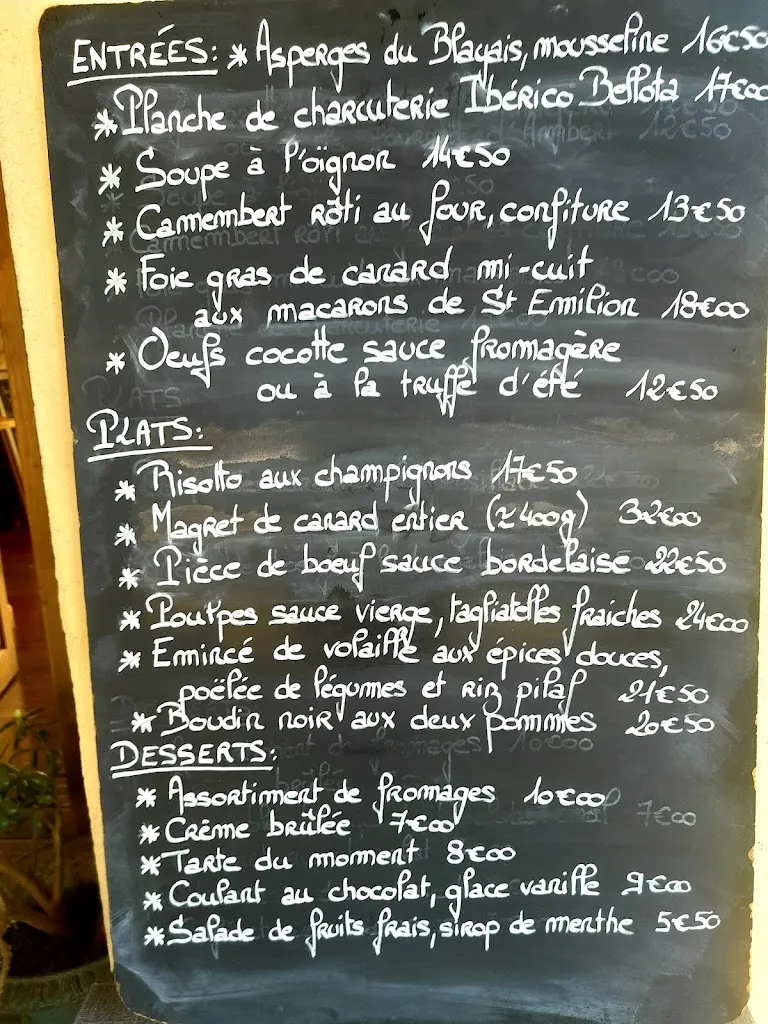 ENTRÉES: * Asperges du Blayais, mousseline 16€50
* Planche de charcuterie Ibérico Bellota 17€00
* Soupe à l'oïgnon 14€50
* Camembert rôti au four, confiture 13€50
* Foie gras de canard mi-cuit
aux macarons de St Emilion 18€00
* Oeufs cocotte sauce fromagère
ou à la truffe d'été 12€50
PLATS:
* Risotto aux champignons 17€50
* Magret de canard entier (≈400g) 32€00
* Pièce de boeuf sauce bordelaise 22€50
* Poulpes sauce vierge, tagliatelles fraiches 24€00
* Emincé de volaille aux épices douces,
poëlée de légumes et riz pilaf 21€50
* Boudin noir aux deux pommes 20€50
DESSERTS:
* Assortiment de fromages 10€00
* Crème brûlée 7€00
* Tarte du moment 8€00
* Coulant au chocolat, glace vanille 9€00
* Salade de fruits frais, sirop de menthe 5€50